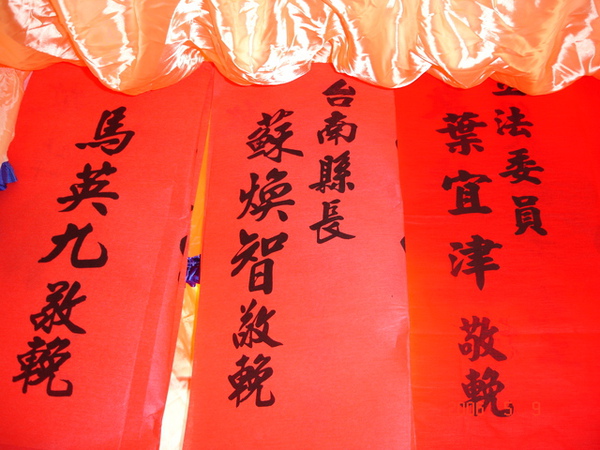 立法委員
葉宜津 敬輓
台南縣長
蘇煥智敬輓
馬英九敬輓